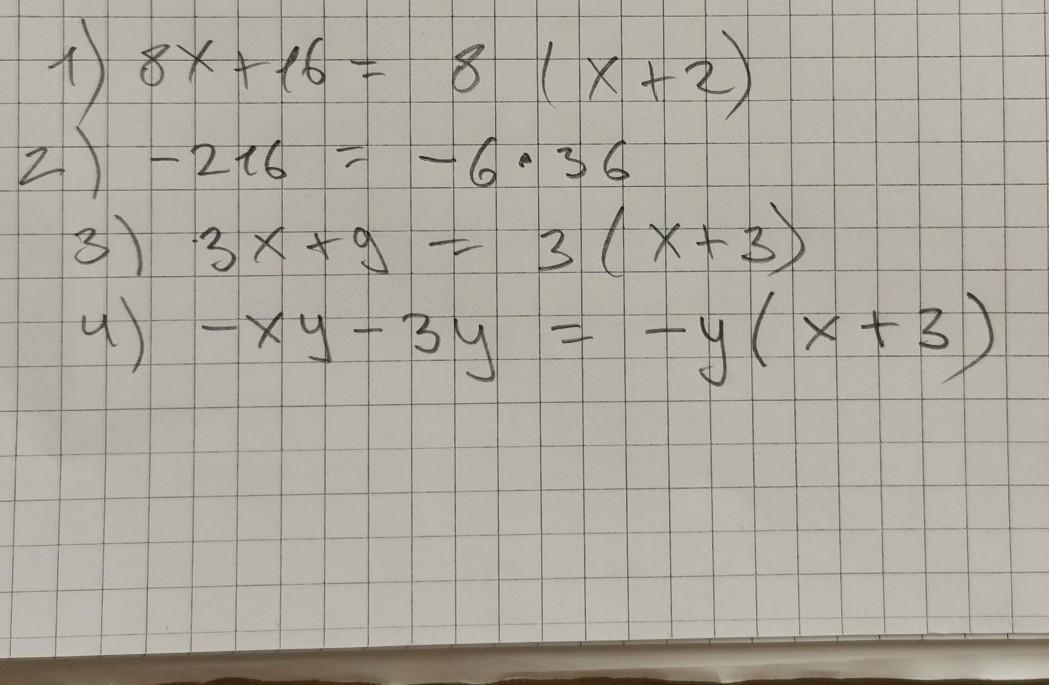 1) 8x+16 = 8 (x+2)
2) -216 = -6·36
3) 3x+9 = 3(x+3)
4) -xy-3y = -y(x+3)